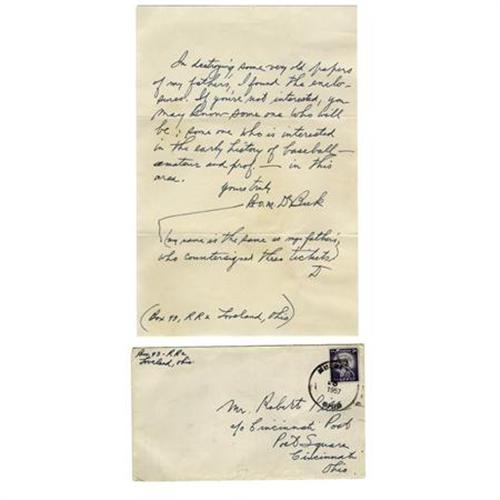 In destroying some very old papers
of my fathers', I found the enclo-
sures. If you're not interested, you
may know some one who will
be; some one who is interested
in the early history of baseball —
amateur and prof — in this
area.
Yours truly
(my name is the same as my father's,
who countersigned these tickets)
D
(Box 93, RR2 Loveland, Ohio)
Box 93 - RR2
Loveland, Ohio
1957
OHIO
Mr. Robert
c/o Cincinnati Post
Post Square
Cincinnati
Ohio.